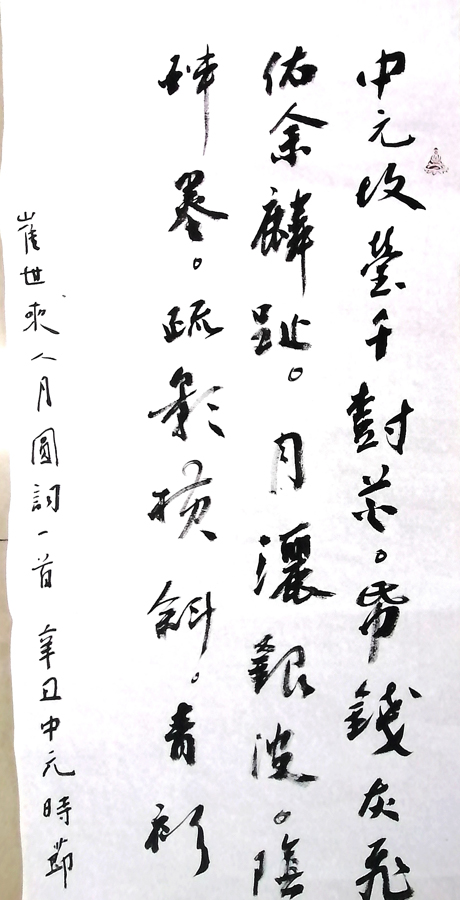 中元坟塋千。帋錢灰飛
佑余麟趾。月灑銀波。陰
碑墓。疏影橫斜。青衫
崔世來人月圓詞一首 辛丑中元時節